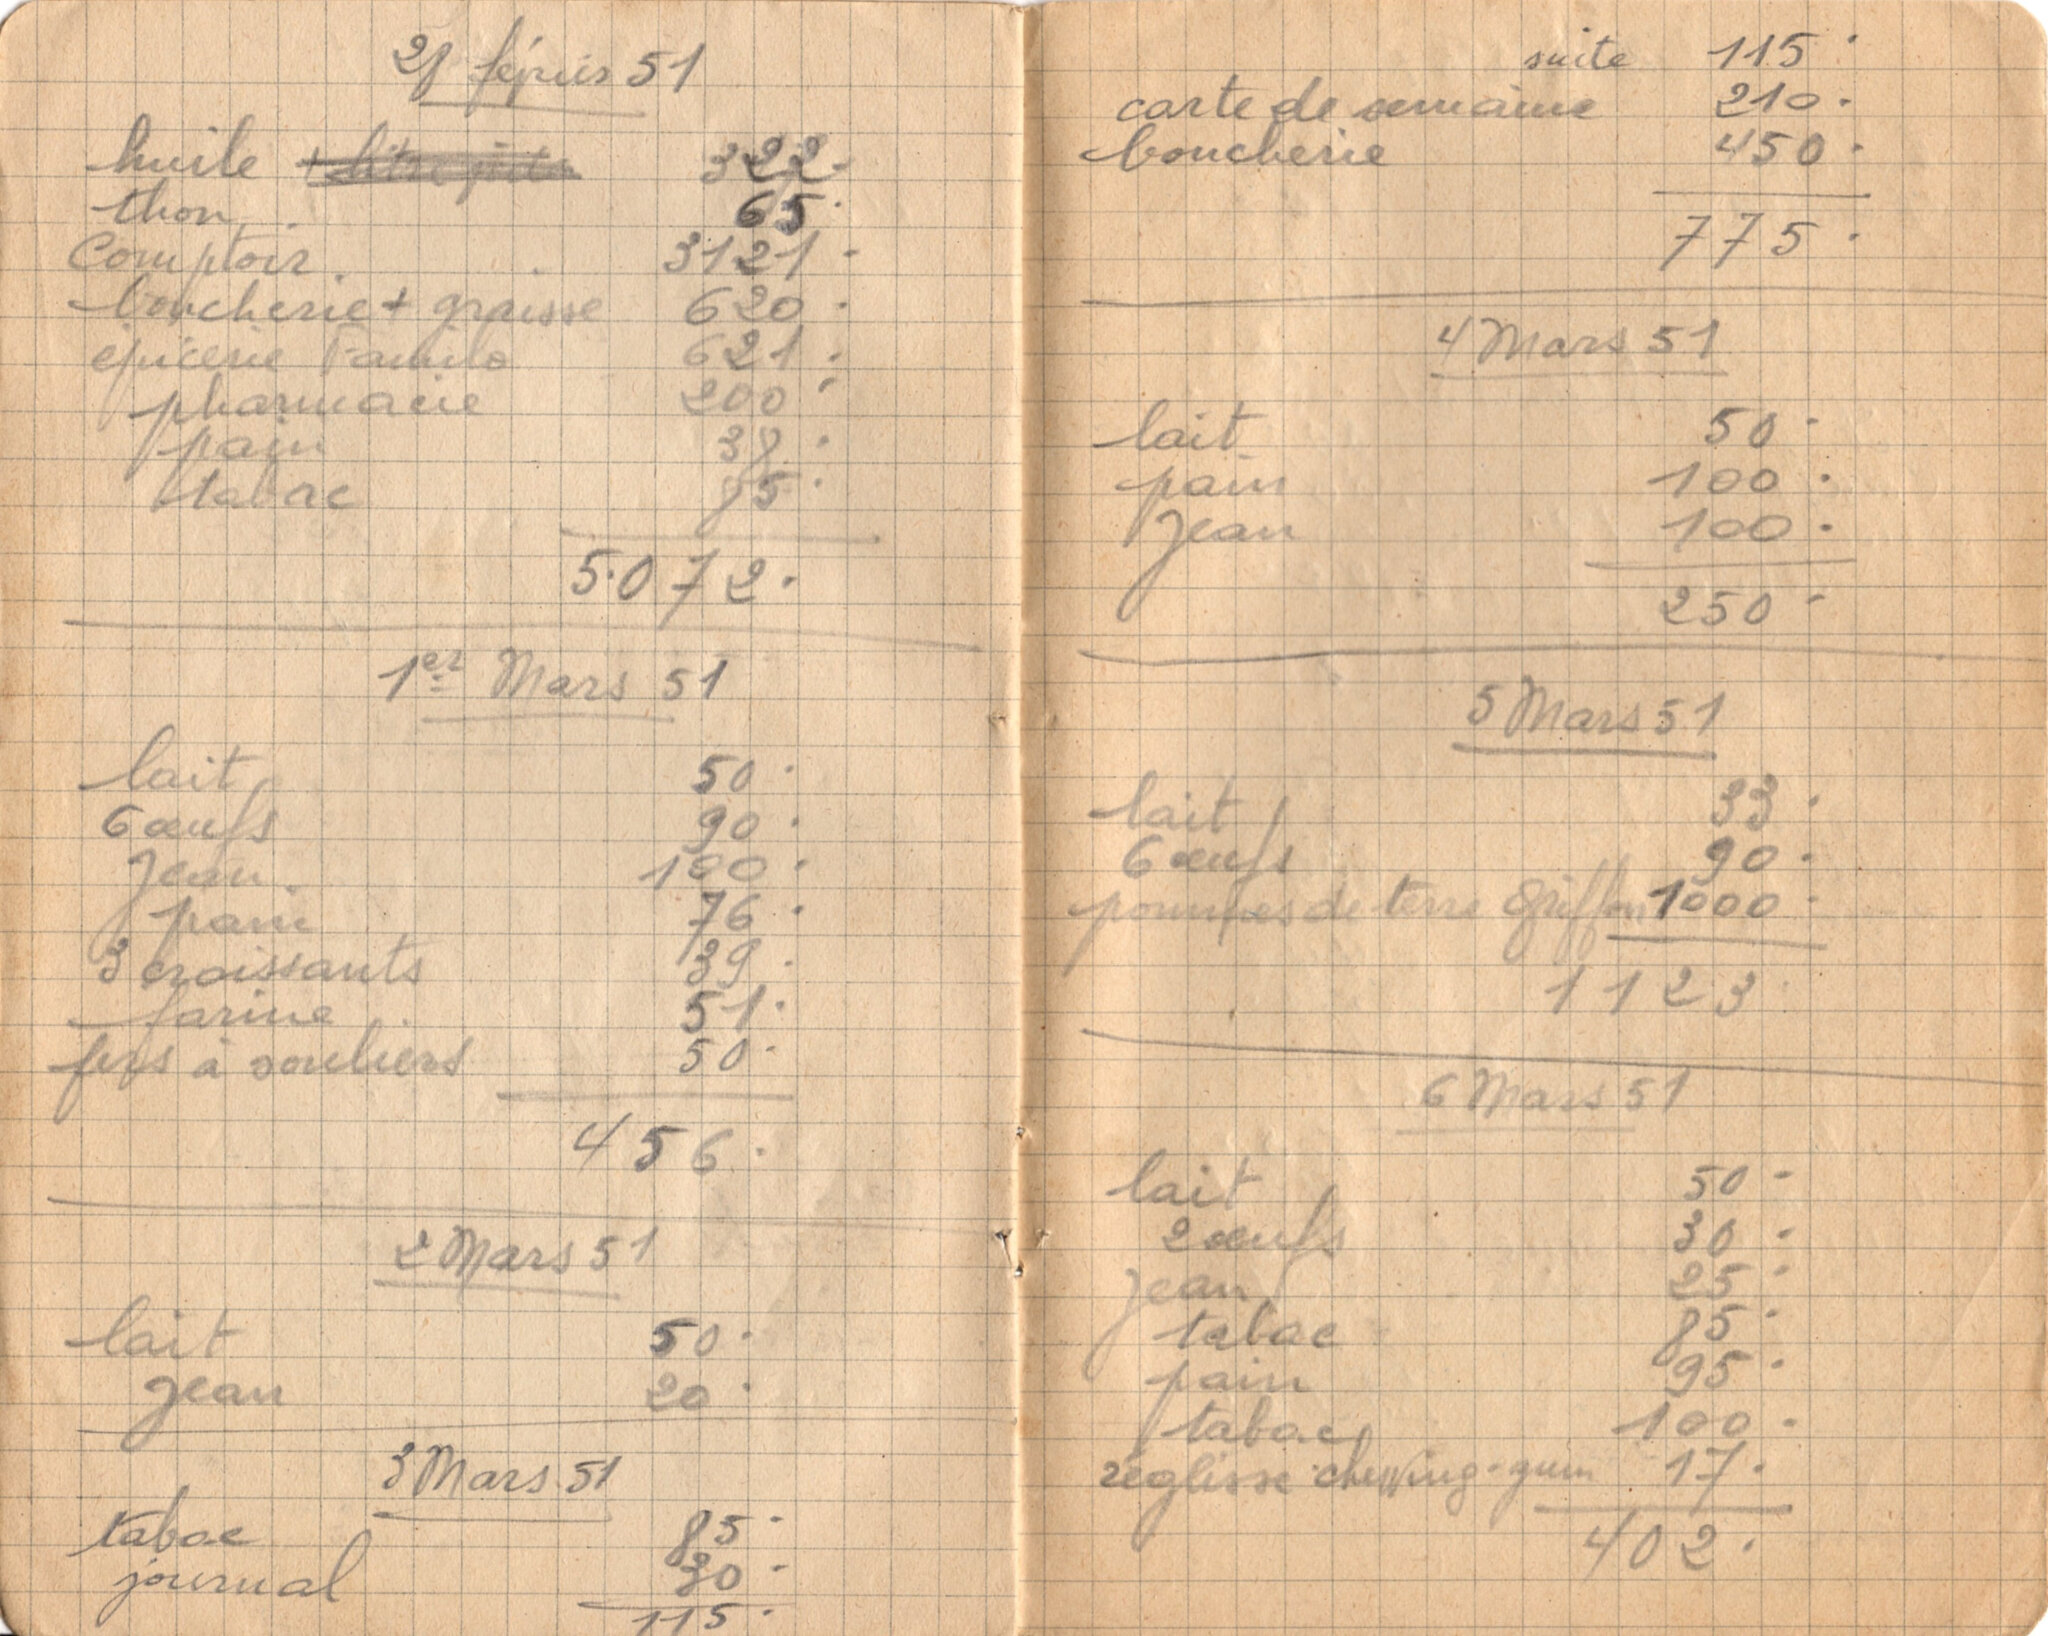 28 février 51
huile 322.
thon 65.
Comptoir 3121.
boucherie + graisse 620.
épicerie 621.
pharmacie 200.
pain 38.
tabac 85.
5.072.
1er Mars 51
lait 50.
6 œufs 90.
Jean 100.
pain 76.
3 croissants 39.
farine 51.
fers à souliers 50.
456.
2 Mars 51
lait 50.
Jean 20.
3 Mars 51
tabac 85.
journal 30.
115.
suite 115.
carte de semaine 210.
boucherie 450.
775.
4 Mars 51
lait 50.
pain 100.
Jean 100.
250.
5 Mars 51
lait 33.
6 œufs 90.
pommes de terre Griffon 1000.
1123.
6 Mars 51
lait 50.
2 œufs 30.
Jean 25.
tabac 85.
pain 95.
tabac 100.
réglisse chewing-gum 17.
402.